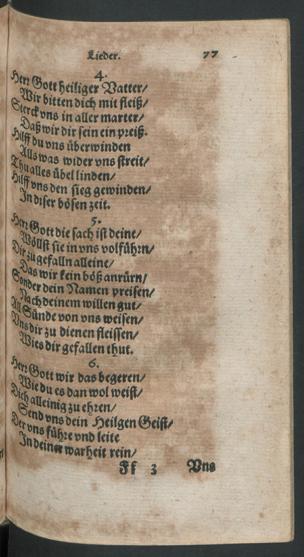 Lieder. 77
4.
Herr Gott heiliger Vatter/
Wir bitten dich mit fleiß/
Sterck vns in aller marter/
Daß wir dir sein ein preiß.
Hilff du vns überwinden
Alls was wider vns streit/
Thu alles übel linden/
Hilff vns den sieg gewinden/
In diser bösen zeit.
5.
Herr Gott die sach ist deine/
Wöllst sie in vns volführn/
Dir zu gefalln alleine/
Das wir kein böß anrürn/
Sonder dein Namen preisen/
Nach deinem willen gut/
All Sünde von vns weisen/
Vns dir zu dienen fleissen/
Wies dir gefallen thut.
6.
Herr Gott wir das begeren/
Wie du es dan wol weist/
Dich alleinig zu ehren/
Send vns dein Heilgen Geist/
Der vns führe vnd leite
In deiner warheit rein/
Ff 3 Vns